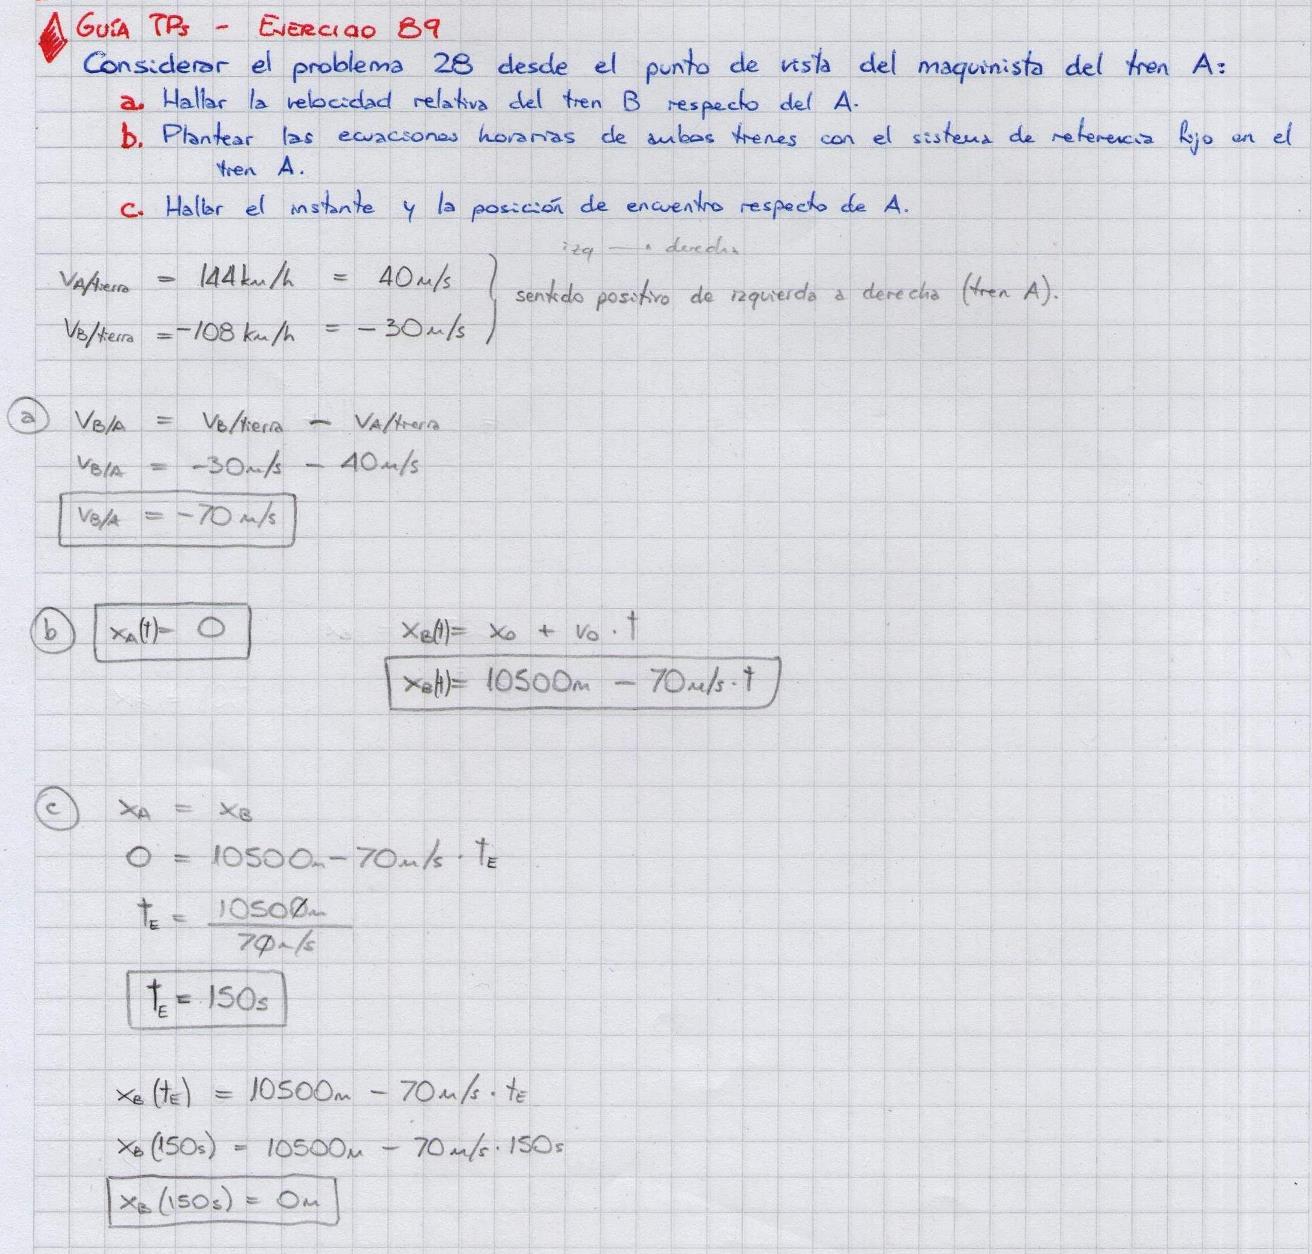 GUÍA TPs - EJERCICIO B9
Considerar el problema 28 desde el punto de vista del maquinista del tren A:
a. Hallar la velocidad relativa del tren B respecto del A.
b. Plantear las ecuaciones horarias de ambos trenes con el sistema de referencia fijo en el
tren A.
c. Hallar el instante y la posición de encuentro respecto de A.
izq → derecha
VA/tierra = 144 km/h = 40 m/s
sentido positivo de izquierda a derecha (tren A).
VB/tierra = -108 km/h = -30 m/s
a VB/A = VB/tierra - VA/tierra
VB/A = -30 m/s - 40 m/s
VB/A = -70 m/s
b xA(t) = 0 xB(t) = x0 + v0 . t
xB(t) = 10500m - 70 m/s . t
c xA = xB
0 = 10500m - 70 m/s . tE
tE = 10500m / 70 m/s
tE = 150s
xB(tE) = 10500m - 70 m/s . tE
xB(150s) = 10500m - 70 m/s . 150s
xB(150s) = 0m